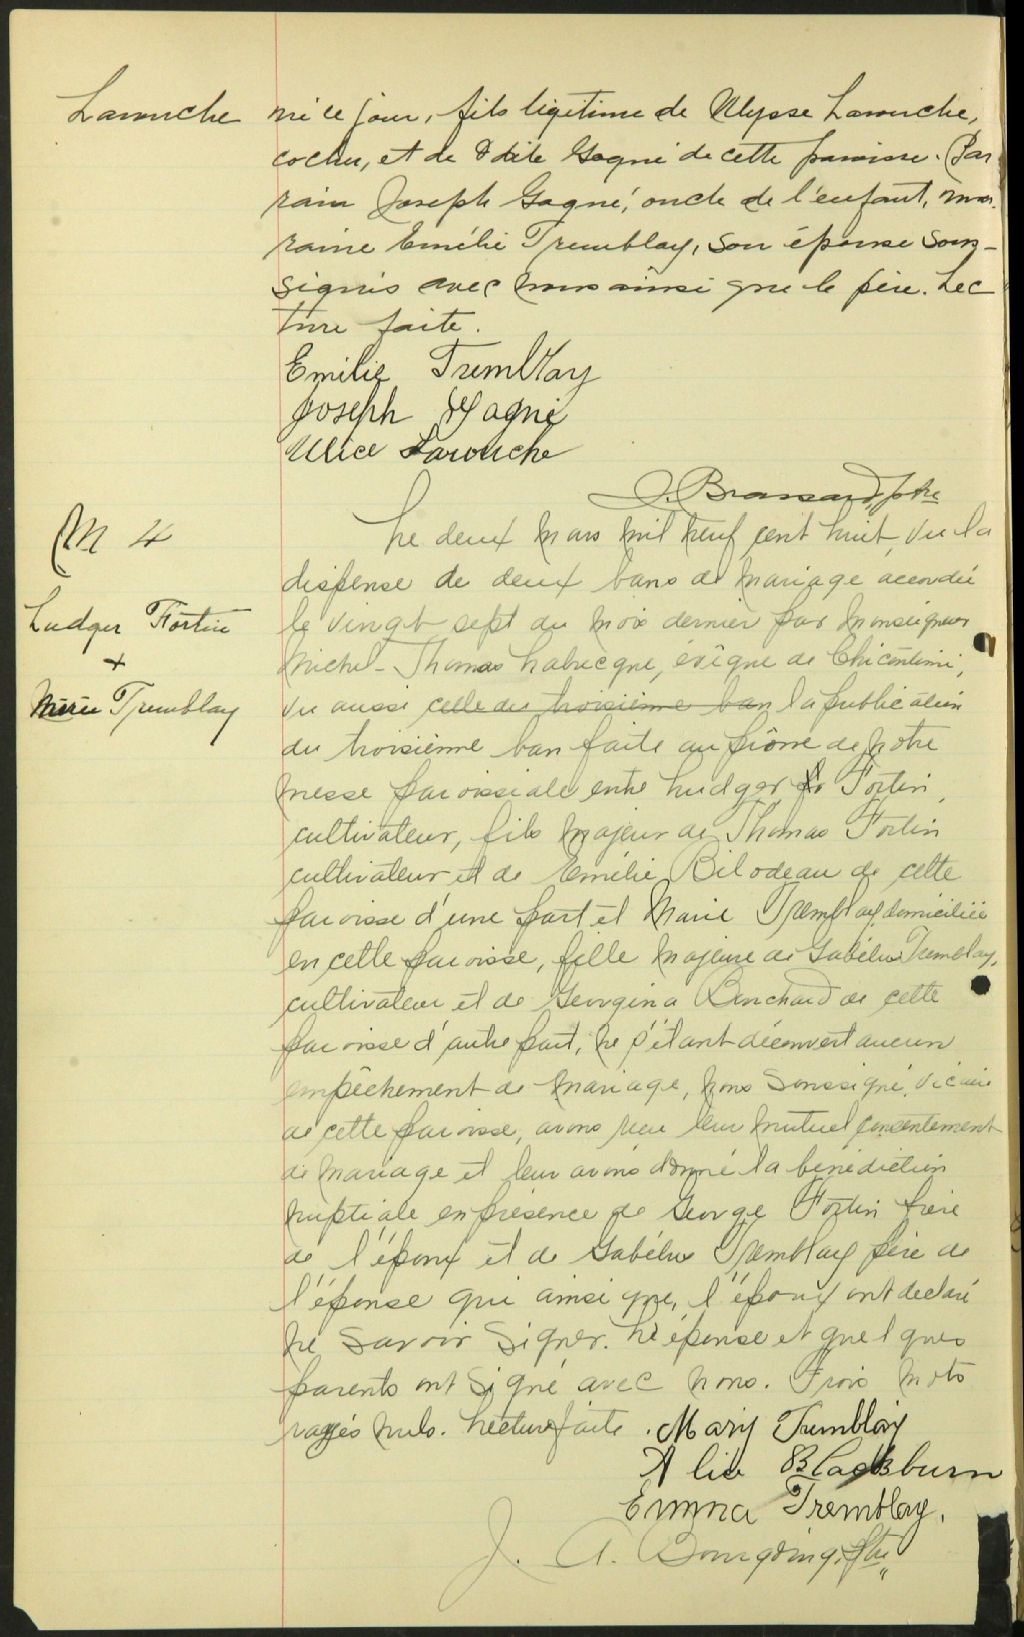 Larouche
né ce jour, fils légitime de Ulysse Larouche,
cocher, et de Odile Gagné de cette paroisse. Par
rain Joseph Gagné, oncle de l'enfant, mar
raine Emélie Tremblay, son épouse sous-
signés avec nous ainsi que le père. Lec
ture faite.
Emilie Tremblay
Joseph Gagné
Ulice Larouche
J. Brassard, ptre
M 4
Ludger Fortin
+
Marie Tremblay
Le deux mars mil neuf cent huit, vu la
dispense de deux bans de mariage accordée
le vingt sept du mois dernier par Monseigneur
Michel-Thomas Labrecque, évêque de Chicoutimi,
vu aussi celle du troisième ban la publication
du troisième ban faite au prône de notre
messe paroissiale entre Ludger Fortin,
cultivateur, fils majeur de Thomas Fortin
cultivateur et de Emélie Bilodeau de cette
paroisse d'une part et Marie Tremblay domiciliée
en cette paroisse, fille majeure de Gabélus Tremblay,
cultivateur et de Georgina Bouchard de cette
paroisse d'autre part, ne s'étant découvert aucun
empêchement de mariage, nous soussigné, vicaire
de cette paroisse, avons reçu leur mutuel consentement
de mariage et leur avons donné la bénédiction
nuptiale en présence de George Fortin frère
de l'époux et de Gabélus Tremblay père de
l'épouse qui ainsi que l'époux ont déclaré
ne savoir signer. L'épouse et quelques
parents ont signé avec nous. Trois mots
rayés nuls. Lecture faite. Mary Tremblay
Alice Blackburn
Emma Tremblay.
J. A. Bourgoing, ptre